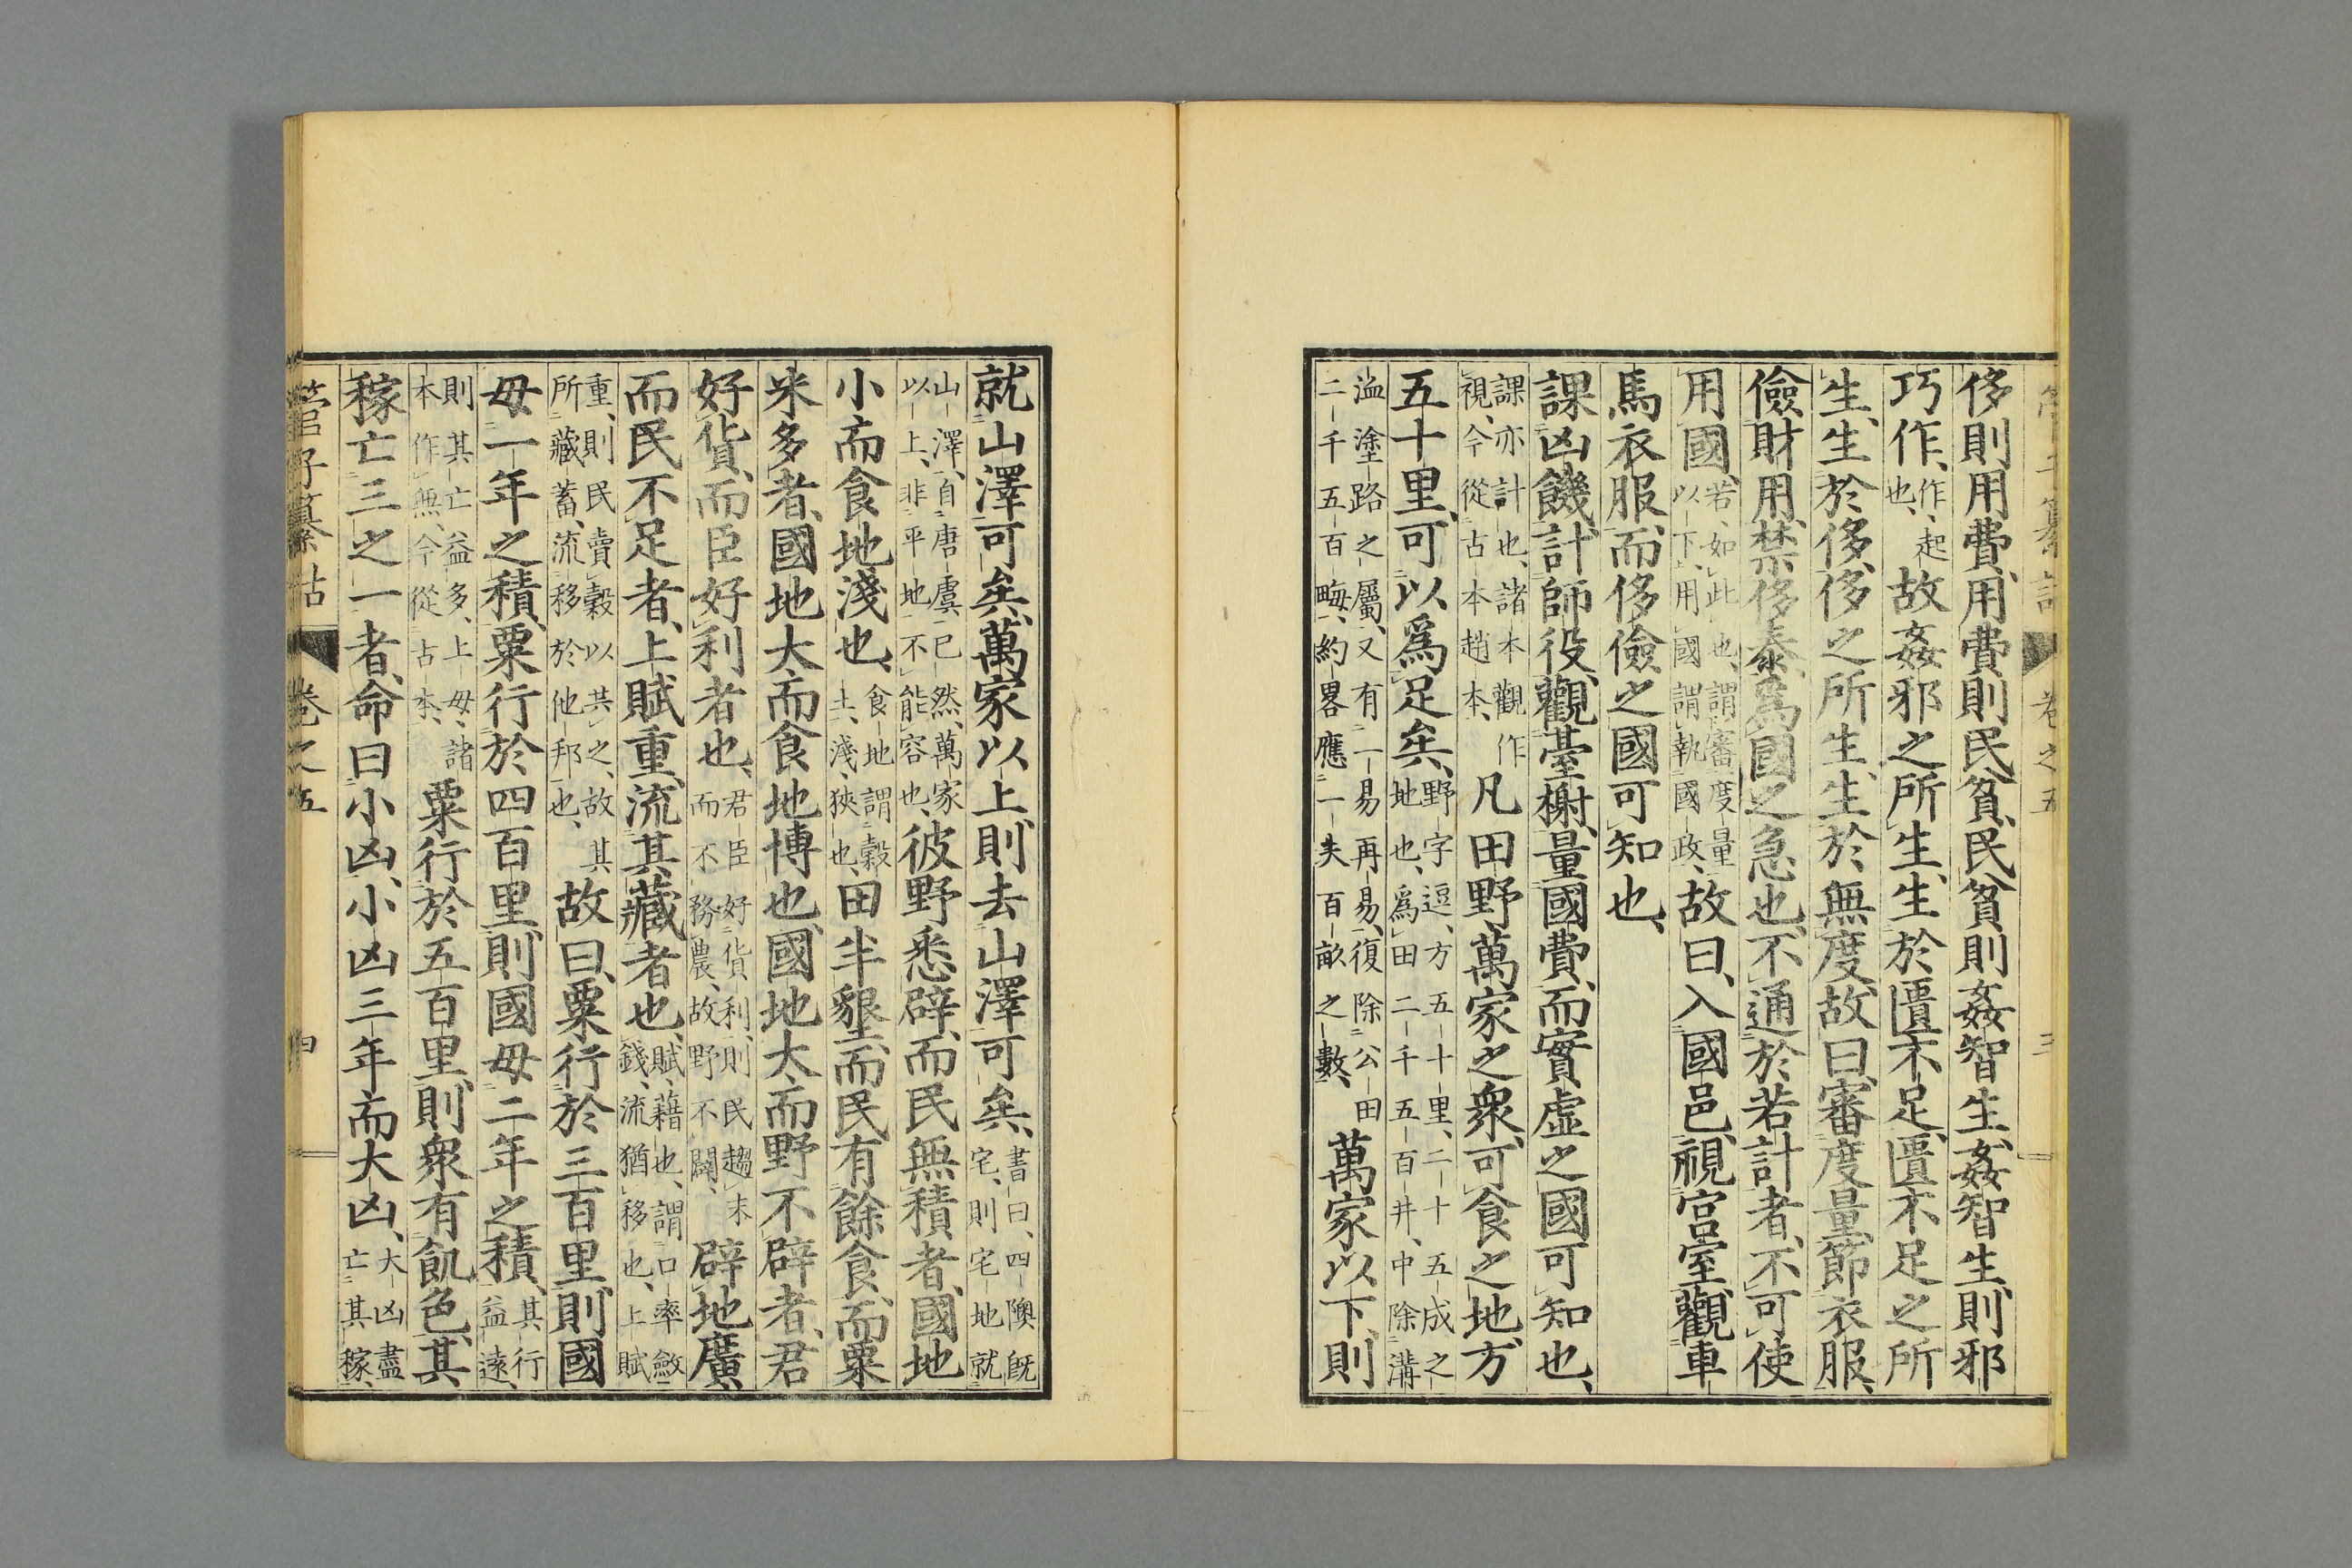 管子纂詁 卷之五 三
侈則用費、用費則民貧、民貧則姦智生、姦智生、則邪
巧作、作、起也、故姦邪之所生、生於匱不足、匱不足之所
生、生於侈、侈之所生、生於無度、故曰、審度量、節衣服、
儉財用、禁侈泰、爲國之急也、不通於若計者、不可使
用國、若、如此也、謂審度量以下、用國謂執國政、故曰、入國邑、視宮室、觀車
馬衣服、而侈儉之國可知也、
課凶饑、計師役、觀臺榭、量國費、而實虛之國可知也、
課亦計也、諸本觀作視、今從古本趙本、凡田野、萬家之衆、可食之地、方
五十里、可以爲足矣、野字逗、方五十里、二十五成之地也、爲田二千五百井、中除溝
洫塗路之屬、又有一易再易、復除公田二千五百畮、約畧應一夫百畝之數、萬家以下、則
就山澤可矣、萬家以上、則去山澤可矣、書曰、四隩既宅、則宅地就
山澤、自唐虞已然、萬家以上、非平地不能容也、彼野悉辟、而民無積者、國地
小而食地淺也、食地謂穀土、淺、狹也、田半墾、而民有餘食、而粟
米多者、國地大、而食地博也、國地大、而野不辟者、君
好貨、而臣好利者也、君臣好貨利、則民趨末而不務農、故野不闢、辟地廣、
而民不足者、上賦重、流其藏者也、賦、藉也、謂口率斂錢、流猶移也、上賦
重、則民賣穀以共之、故其所藏蓄、流移於他邦也、故曰、粟行於三百里、則國
毋一年之積、粟行於四百里、則國毋二年之積、其行益遠、
則其亡益多、上毋、諸本作無、今從古本、粟行於五百里、則衆有飢色、其
稼亡三之一者、命曰小凶、小凶三年而大凶、大凶盡亡其稼、
管子纂詁 卷之五 四